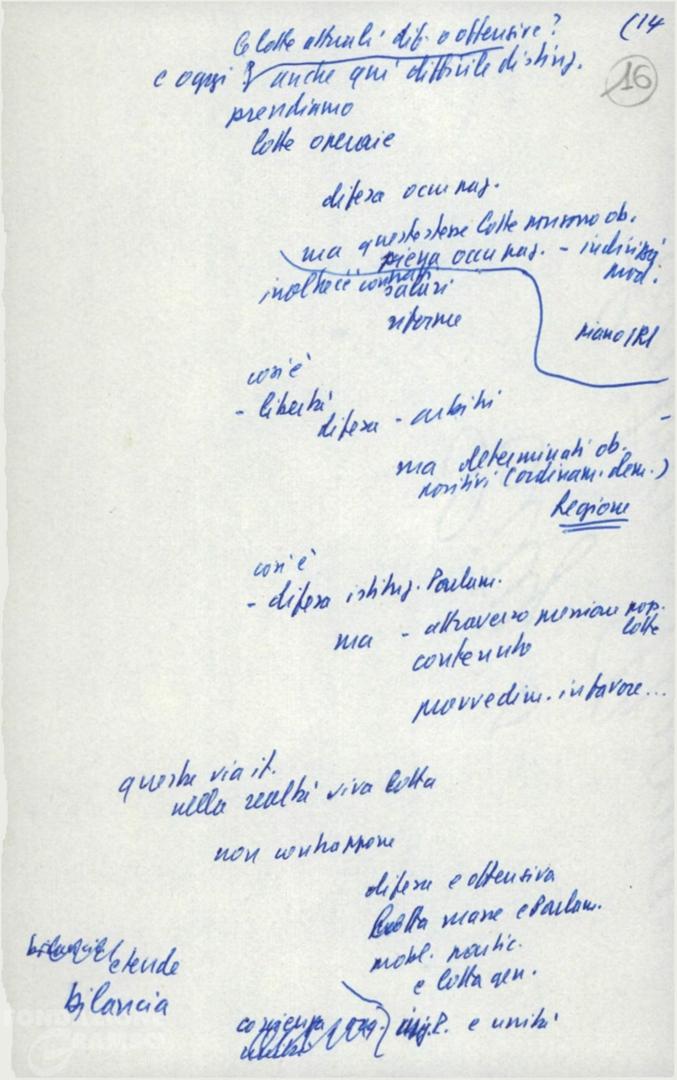 (14
16
le lotte attuali dif. o offensive?
e oggi? anche qui difficile disting.
prendiamo
lotte operaie
difesa occupaz.
ma queste stesse lotte pongono ob.
piena occupaz. - indirizzi
prod.
inoltre c'è contratti
salari
riforme
piano IRI
così è
- libertà
difesa - arbitri
ma determinati ob.
positivi (ordinam. dem.)
Regione
così è
- difesa istituz. Parlam.
ma - attraverso pressione pop.
lotte
contenuto
provvedim. in favore...
questa via it.
nella realtà viva lotta
non contrappone
difesa e offensiva
lotta masse e Parlam.
mobil. partic.
e lotta gen.
estende
bilancia
coscienza
unità
e unità
FONDAZIONE
GRAMSCI